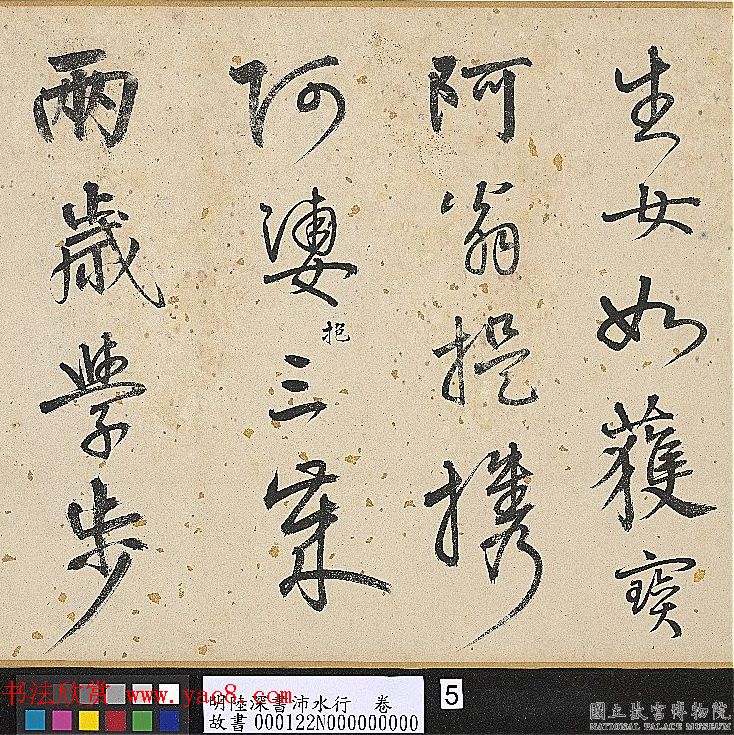 生女如獲寶
阿翁提攜
阿婆抱三歲
兩歲學步
书法欣赏 www.yac8.com
明陸深書沛水行 卷
故書 000122N000000000
5
國立故宮博物院
NATIONAL PALACE MUSEUM